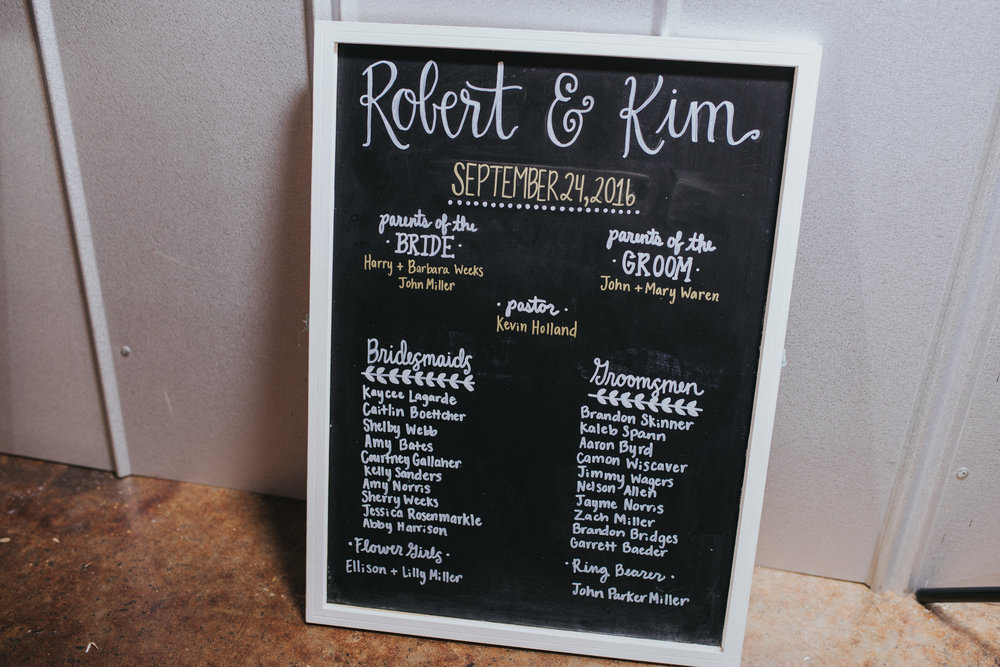 Robert & Kim
SEPTEMBER 24, 2016
parents of the
· BRIDE ·
Harry + Barbara Weeks
John Miller
parents of the
· GROOM ·
John + Mary Waren
· pastor ·
Kevin Holland
Bridesmaids
Kaycee Lagarde
Caitlin Boettcher
Shelby Webb
Amy Bates
Courtney Gallaher
Kelly Sanders
Amy Norris
Sherry Weeks
Jessica Rosenmarkle
Abby Harrison
· Flower Girls ·
Ellison + Lilly Miller
Groomsmen
Brandon Skinner
Kaleb Spann
Aaron Byrd
Camon Wiscaver
Jimmy Wagers
Nelson Allen
Jayme Norris
Zach Miller
Brandon Bridges
Garrett Baeder
· Ring Bearer ·
John Parker Miller